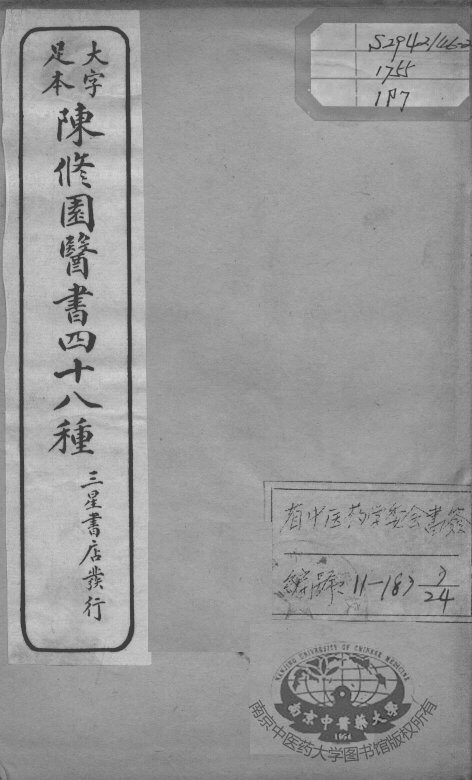 大字
足本
陳修園醫書四十八種
三星書店發行
S2942/46-2
1755
1P7
省中医药学会書籤
編號 11-187 7/24
NANJING UNIVERSITY OF CHINESE MEDICINE
南京中醫藥大學
1954
南京中医药大学图书馆版权所有